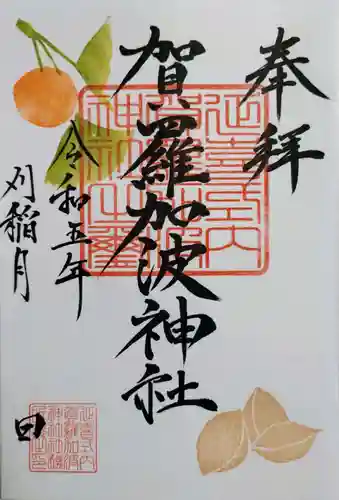 奉拝
賀羅加波神社
令和五年
刈稲月
田